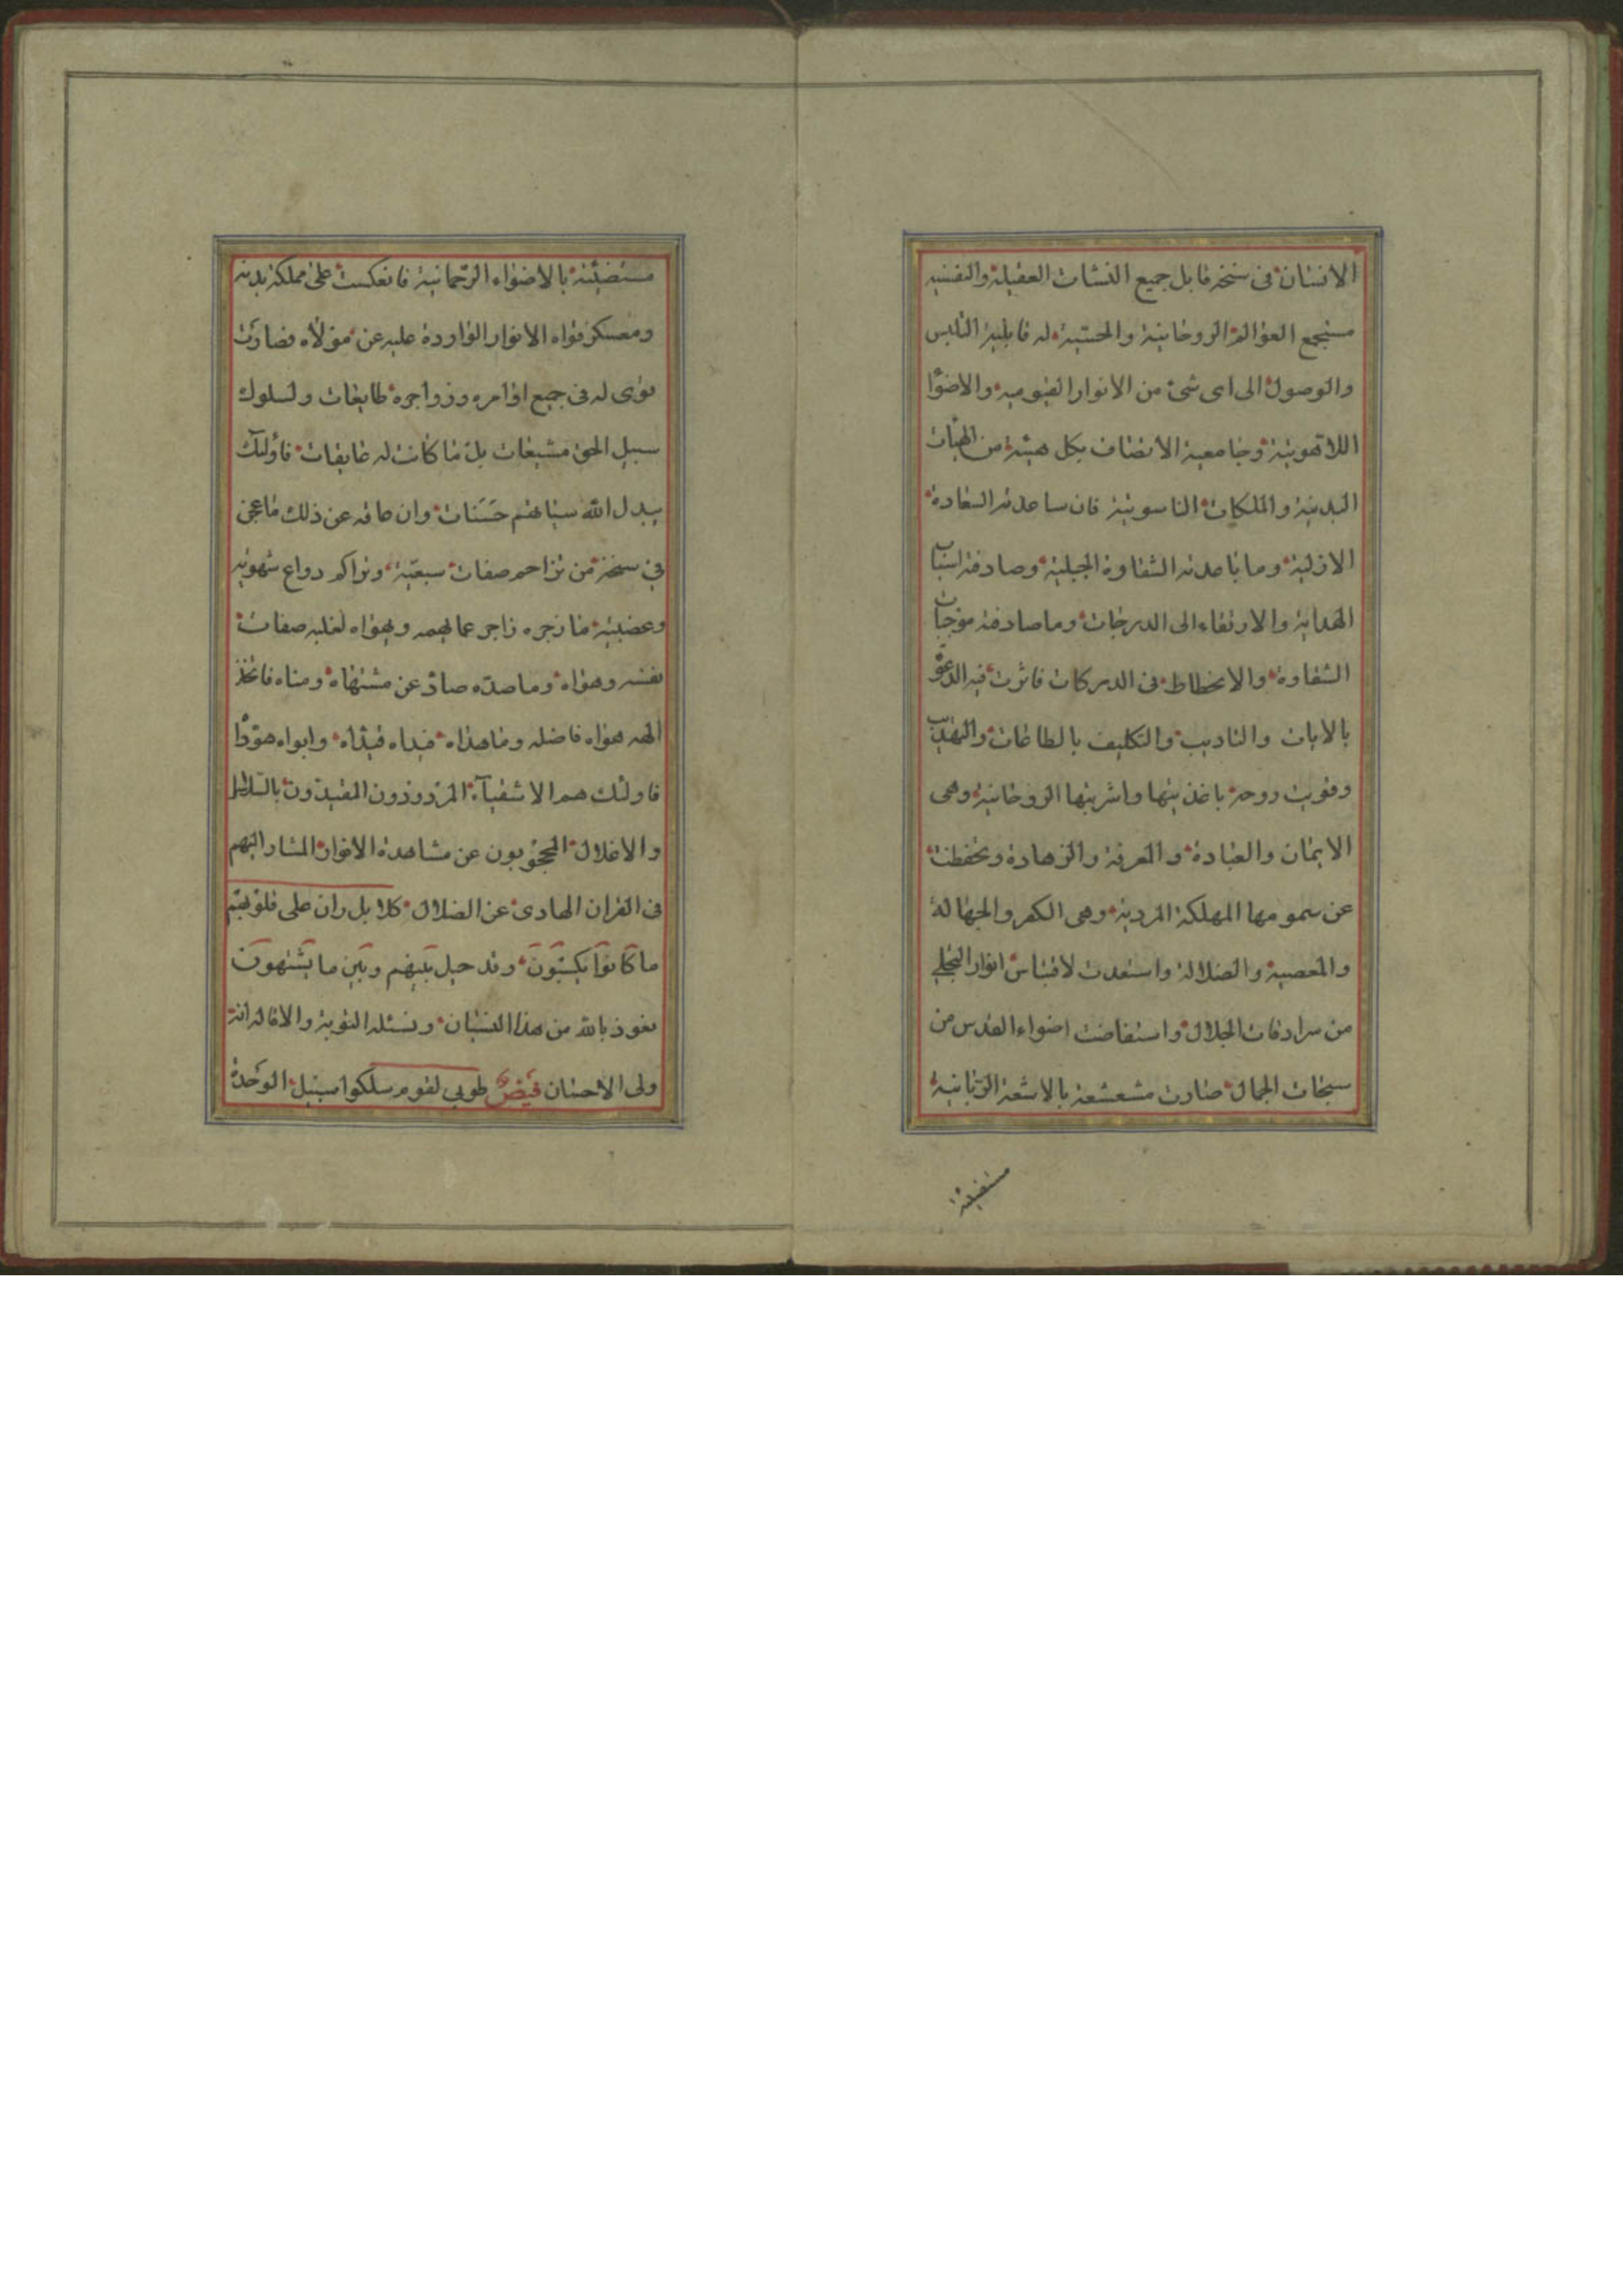 الانسان فى سنخه قابل جميع النشات العقلية والنفسيه
مستجمع العوالم الروحانية والحسّيّة له قابلية التلبس
والوصول الى اى شئ من الانوار القيوميه والاضوا
اللاهوتية وجامعية الاتصاف بكل هيئة من الهيات
البدنية والملكات الناسوتية فان ساعدته السعادة
الازلية وما باعدته الشقاوة الجبلية وصادفه اسباب
الهداية والارتقاء الى الدرجات وما صادفه موجبات
الشقاوة والانحطاط فى الدركات فاثرت فيه الدعوة
بالايات والتاديب والتكليف بالطاعات والتهذيب
وقويت روحه باغذيتها واشربتها الروحانية وهى
الايمان والعبادة والمعرفة والزهادة وتحفظت
عن سمومها المهلكة المردية وهى الكفر والجهالة
والمعصية والضلالة واستعدت لاقتباس انوار التجلى
من سرادقات الجلال واستفاضت اضواء القدس من
سبحات الجمال صارت مشعشعة بالاشعة الرّبّانية
مستضيئة
مستضيئة بالاضواء الرّحمانية فانعكست على مملكة بدنه
ومعسكر قواه الانوار الواردة عليه عن مولاه فصارت
قوى له فى جميع اوامره وزواجره طايعات ولسلوك
سبيل الحق مشيعات بل ما كانت له عايقات فاولئك
يبدل الله سيئاتهم حسنات وان عاقه عن ذلك ما عجن
فى سنخه من تزاحم صفات سبعيّة وتراكم دواع شهويه
وغضبية ما زجره زاجر عما يهمه ويهواه لغلبه صفات
نفسه وهواه وما صدّه صادّ عن مشتهاه ومناه فاتخذ
الهه هواه فاضله وما هداه فيداه قيداه وابواه هوّدا
فاولئك هم الاشقيآء المردودون المقيدون بالسّلاسل
والاغلال المحجوبون عن مشاهدة الانوار المشار اليهم
فى القران الهادى عن الضلال كلا بل ران على قلوبهم
ما كانوا يكسبون وقد حيل بينهم وبين ما يشتهون
نعوذ بالله من هذا النسيان ونسئله التوبة والاقاله انه
ولى الاحسان فيض طوبى لقوم سلكوا سبيل الوحدة